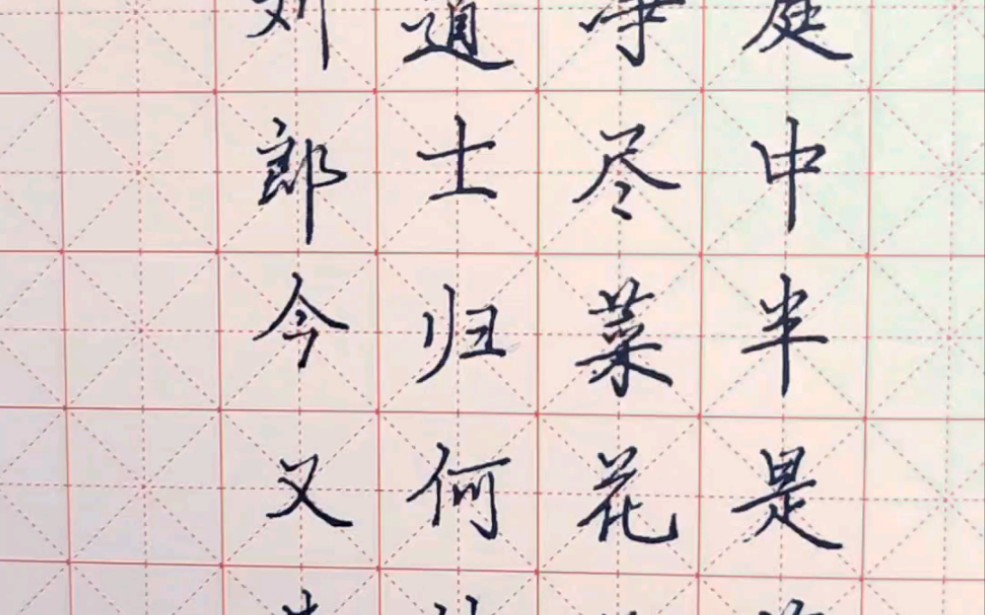 庭中半是
净尽菜花
道士归何
刘郎今又